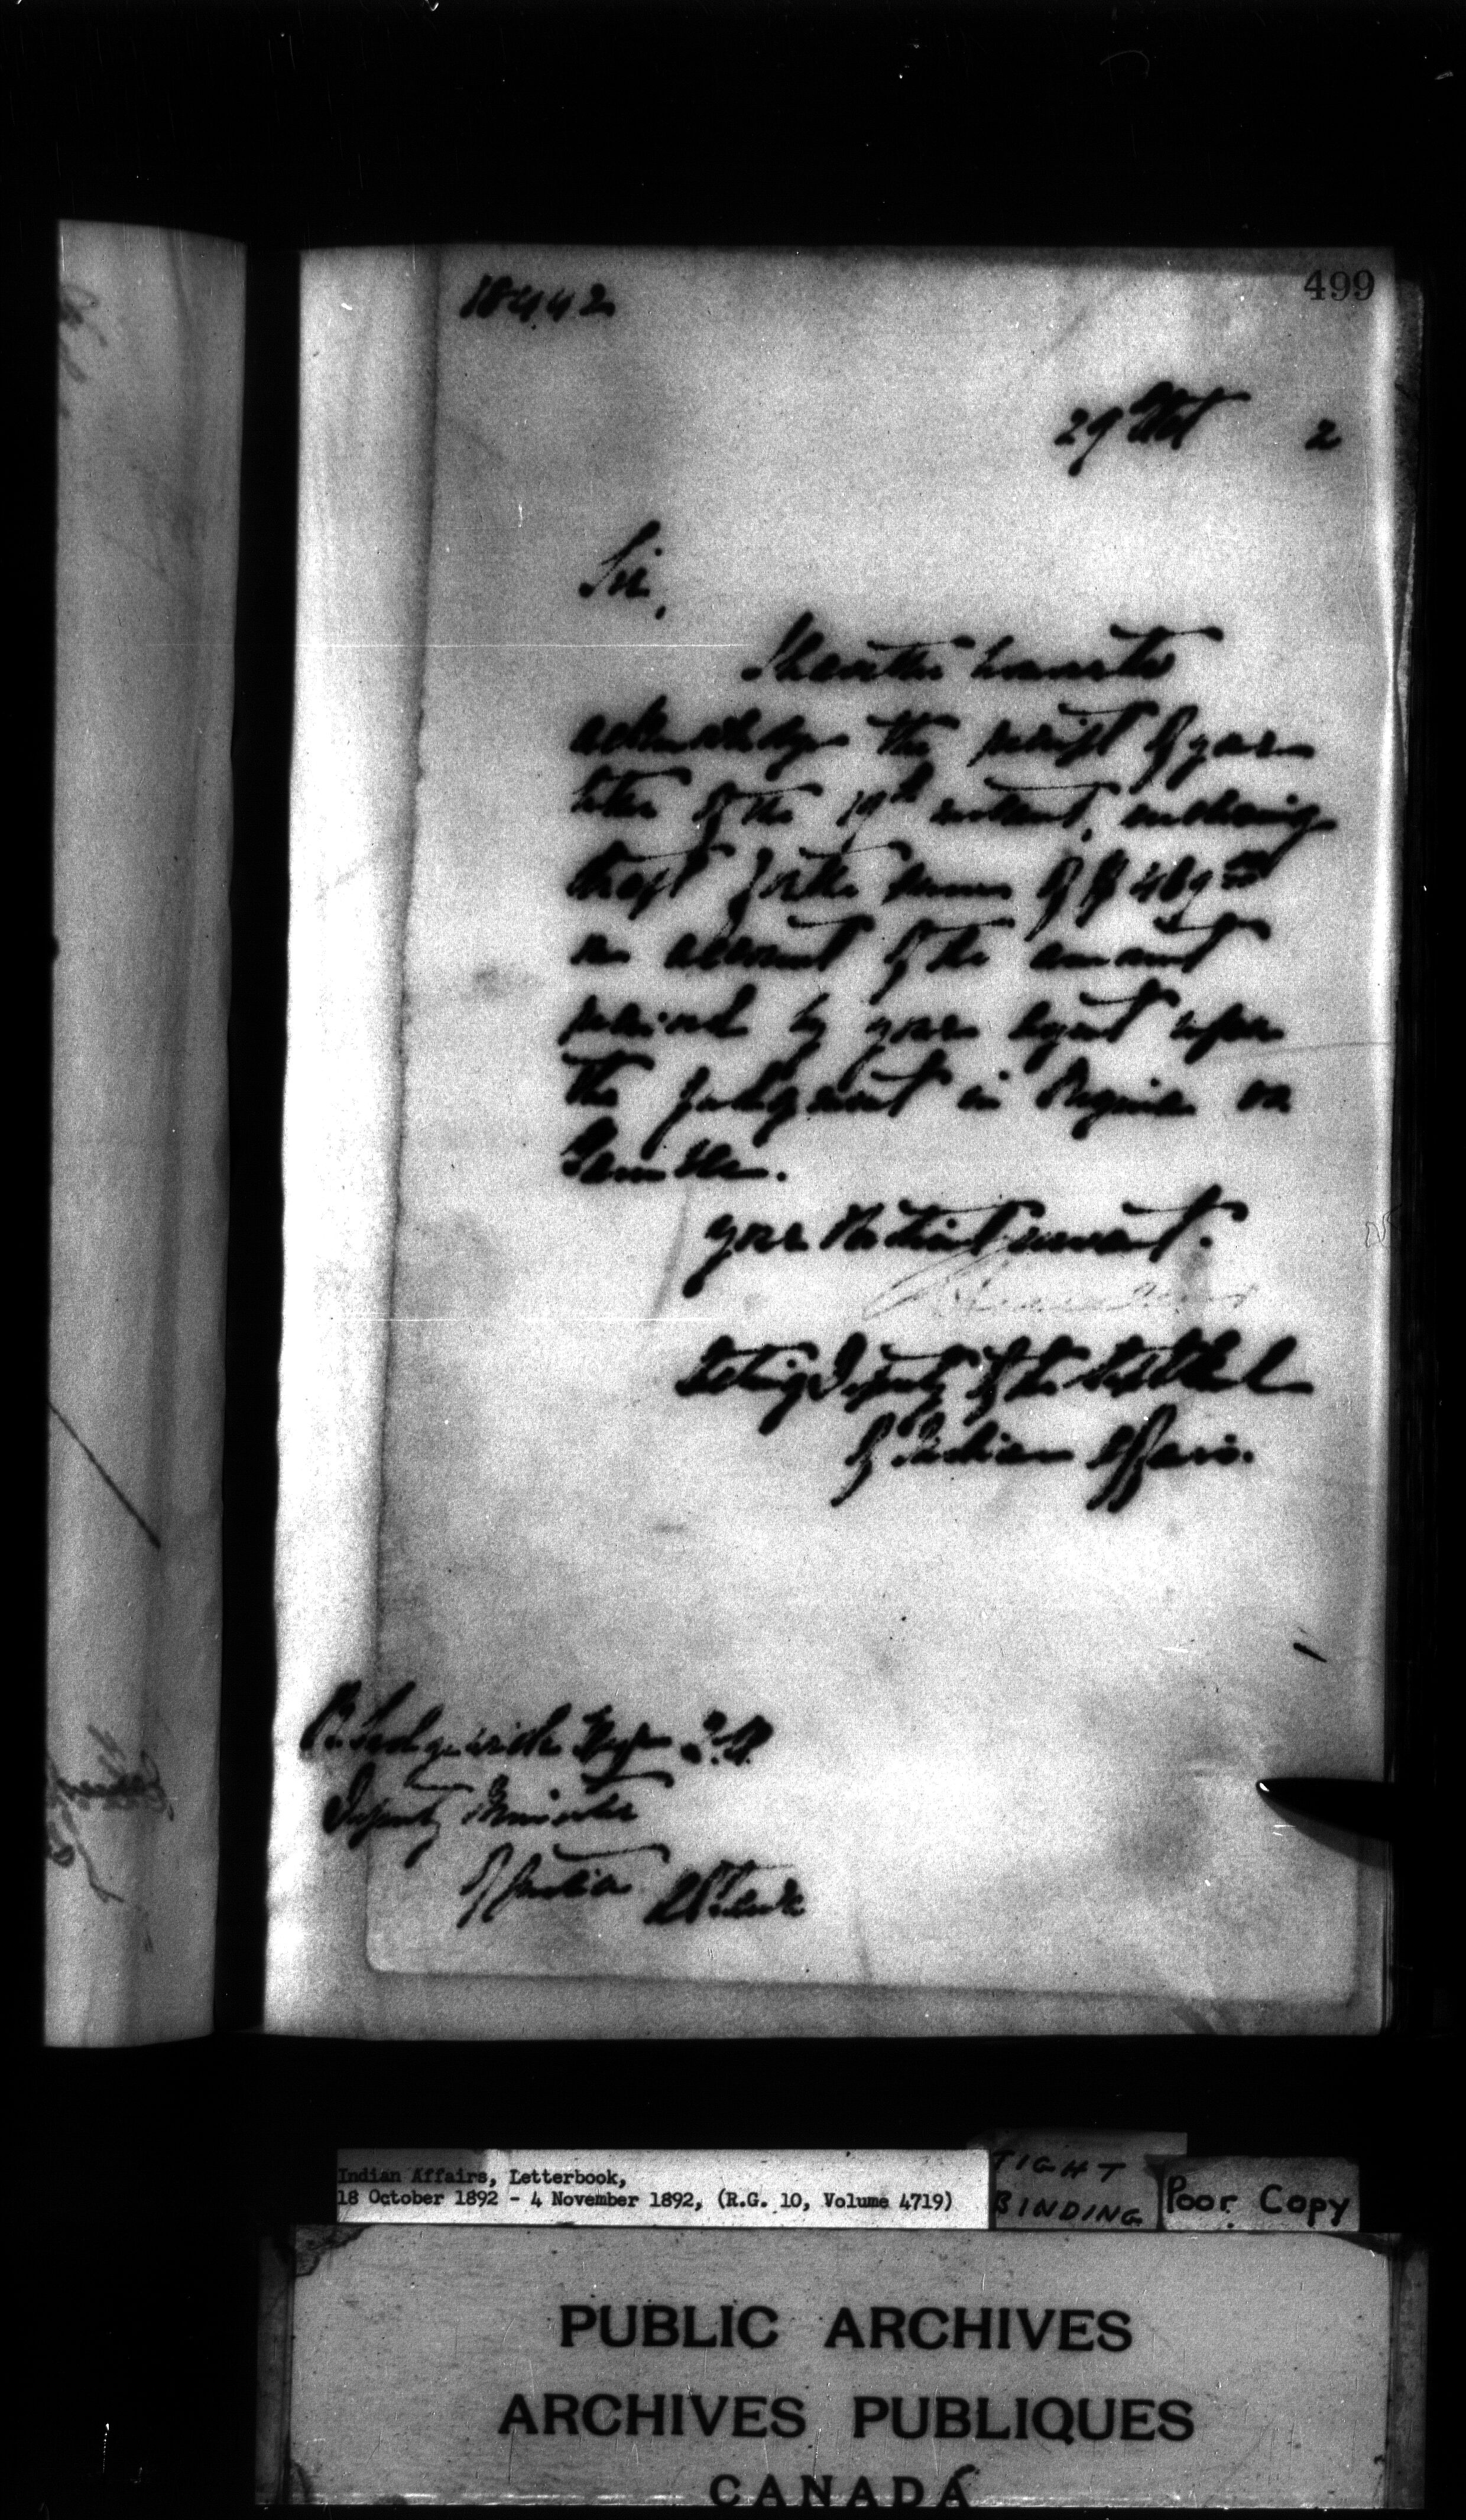 499
18442
29 Oct 2
Sir,
I have the honor to
acknowledge the receipt of your
letter of the 19th instant, enclosing
draft for the sum of $ 469
on account of the amount
received by your agent upon
the judgment in Regina vs
your obedient servant.
Acting Deputy of the Supt Genl
of Indian Affairs.
R. Sedgewick Esqr Q.C.
Deputy Minister
of Justice
Indian Affairs, Letterbook,
18 October 1892 - 4 November 1892, (R.G. 10, Volume 4719)
TIGHT
BINDING
Poor Copy
PUBLIC ARCHIVES
ARCHIVES PUBLIQUES
CANADA